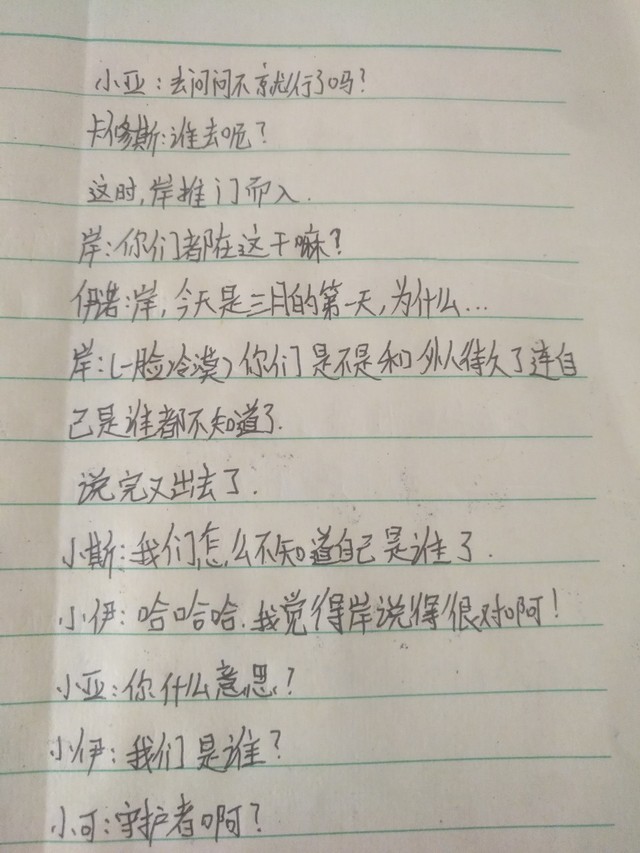 小亚：去问问不就行了吗？
卡修斯：谁去呢？
这时，岸推门而入．
岸：你们都在这干嘛？
伊诺：岸，今天是三月的第一天，为什么...
岸：(一脸冷漠)你们是不是和外人待久了连自
己是谁都不知道了．
说完又出去了．
小斯：我们怎么不知道自己是谁了．
小伊：哈哈哈．我觉得岸说得很对啊！
小亚：你什么意思？
小伊：我们是谁？
小可：守护者啊？